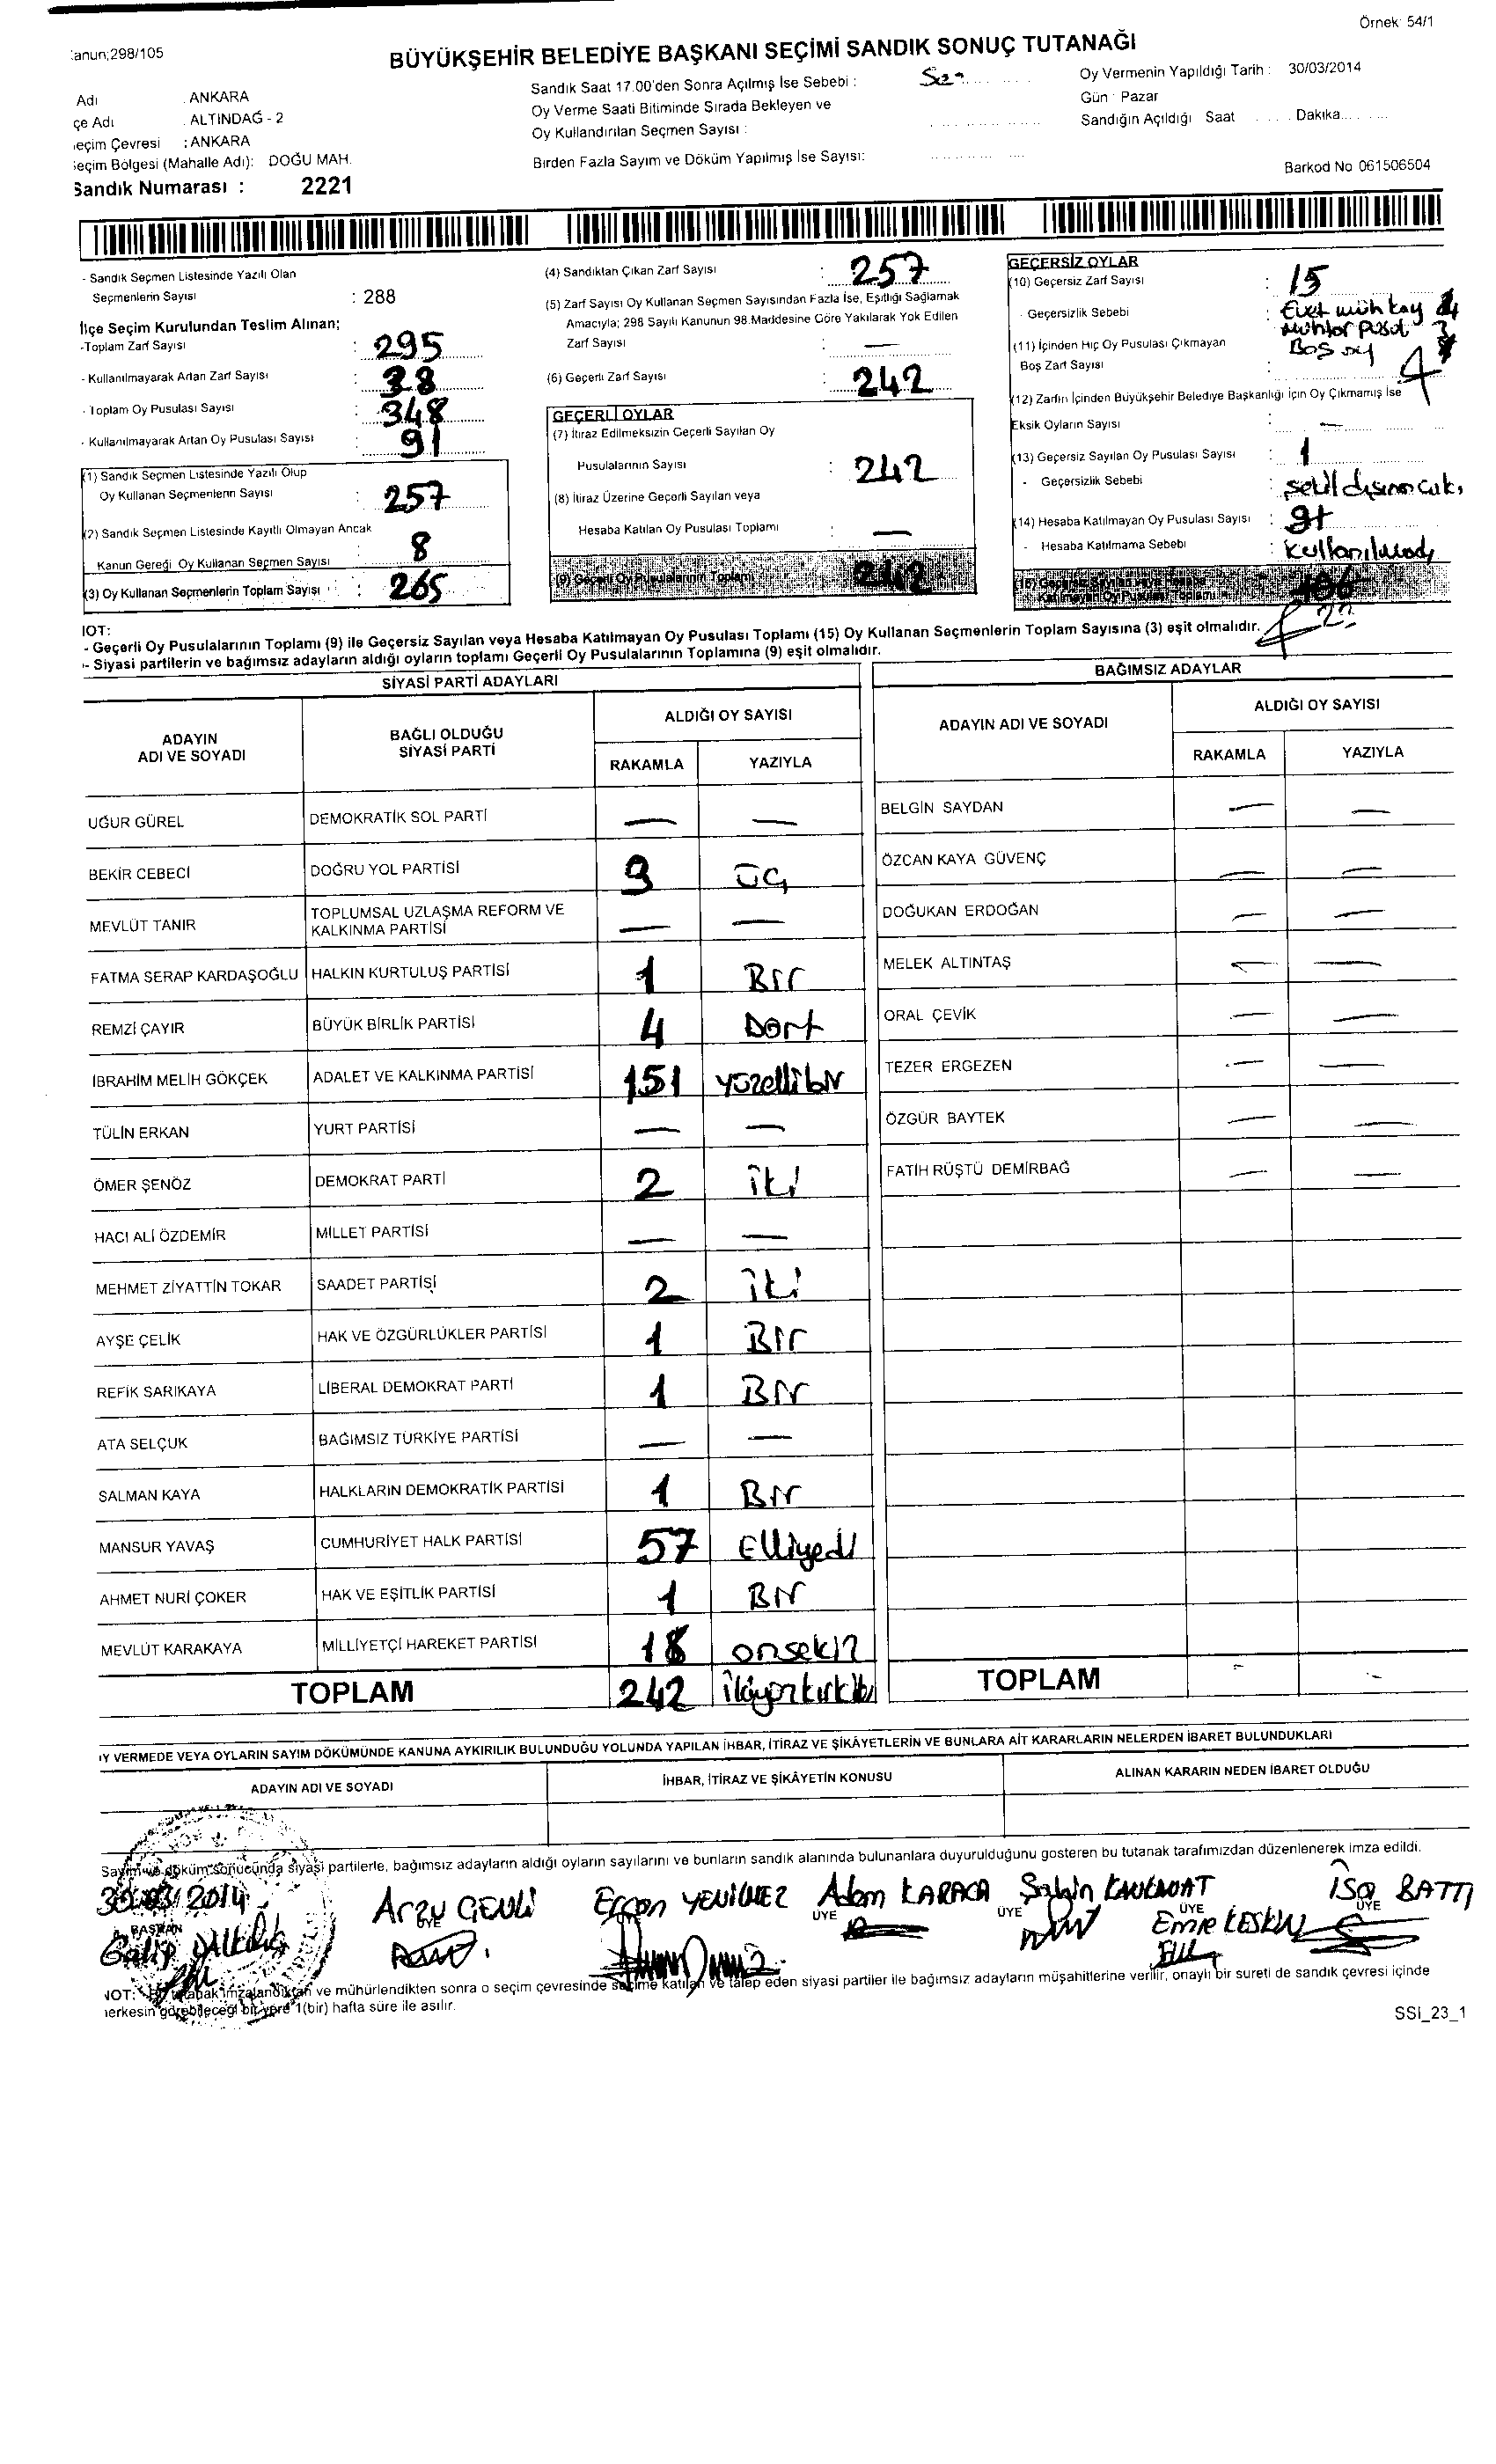 Örnek 54/1
:anun;298/105
BÜYÜKŞEHİR BELEDİYE BAŞKANI SEÇİMİ SANDIK SONUÇ TUTANAĞI
Adı : ANKARA
çe Adı : ALTINDAĞ - 2
eçim Çevresi : ANKARA
eçim Bölgesi (Mahalle Adı): DOĞU MAH.
Sandık Numarası : 2221
Sandık Saat 17.00'den Sonra Açılmış İse Sebebi :
Oy Verme Saati Bitiminde Sırada Bekleyen ve
Oy Kullandırılan Seçmen Sayısı :
Birden Fazla Sayım ve Döküm Yapılmış İse Sayısı:
Oy Vermenin Yapıldığı Tarih : 30/03/2014
Gün : Pazar
Sandığın Açıldığı Saat ..... Dakika.....
Barkod No 061506504
- Sandık Seçmen Listesinde Yazılı Olan
Seçmenlerin Sayısı : 288
İlçe Seçim Kurulundan Teslim Alınan;
-Toplam Zarf Sayısı : 295
- Kullanılmayarak Artan Zarf Sayısı : 38
- Toplam Oy Pusulası Sayısı : 348
- Kullanılmayarak Artan Oy Pusulası Sayısı : 91
(1) Sandık Seçmen Listesinde Yazılı Olup
Oy Kullanan Seçmenlerin Sayısı : 257
(2) Sandık Seçmen Listesinde Kayıtlı Olmayan Ancak
Kanun Gereği Oy Kullanan Seçmen Sayısı 8
(3) Oy Kullanan Seçmenlerin Toplam Sayısı : 265
(4) Sandıktan Çıkan Zarf Sayısı : 257
(5) Zarf Sayısı Oy Kullanan Seçmen Sayısından Fazla İse, Eşitliği Sağlamak
Amacıyla; 298 Sayılı Kanunun 98.Maddesine Göre Yakılarak Yok Edilen
Zarf Sayısı : —
(6) Geçerli Zarf Sayısı : 242
GEÇERLİ OYLAR
(7) İtiraz Edilmeksizin Geçerli Sayılan Oy
Pusulalarının Sayısı : 242
(8) İtiraz Üzerine Geçerli Sayılan veya
Hesaba Katılan Oy Pusulası Toplamı : —
(9) Geçerli Oy Pusulalarının Toplamı 242
GEÇERSİZ OYLAR
(10) Geçersiz Zarf Sayısı : 15
- Geçersizlik Sebebi : Evet müh
Muhtar pusul
Boş
(11) İçinden Hiç Oy Pusulası Çıkmayan
Boş Zarf Sayısı : 4
(12) Zarfın İçinden Büyükşehir Belediye Başkanlığı İçin Oy Çıkmamış İse
Eksik Oyların Sayısı : —
(13) Geçersiz Sayılan Oy Pusulası Sayısı : 1
- Geçersizlik Sebebi :
(14) Hesaba Katılmayan Oy Pusulası Sayısı : 91
- Hesaba Katılmama Sebebi : kullanılmadı
(15) Geçersiz Sayılan veya Hesaba
Katılmayan Oy Pusulası Toplamı 106
22
IOT:
- Geçerli Oy Pusulalarının Toplamı (9) ile Geçersiz Sayılan veya Hesaba Katılmayan Oy Pusulası Toplamı (15) Oy Kullanan Seçmenlerin Toplam Sayısına (3) eşit olmalıdır.
- Siyasi partilerin ve bağımsız adayların aldığı oyların toplamı Geçerli Oy Pusulalarının Toplamına (9) eşit olmalıdır.
SİYASİ PARTİ ADAYLARI
ADAYIN ADI VE SOYADI BAĞLI OLDUĞU SİYASİ PARTİ ALDIĞI OY SAYISI
RAKAMLA YAZIYLA
UĞUR GÜREL DEMOKRATİK SOL PARTİ — —
BEKİR CEBECİ DOĞRU YOL PARTİSİ 3 ÜÇ
MEVLÜT TANIR TOPLUMSAL UZLAŞMA REFORM VE KALKINMA PARTİSİ — —
FATMA SERAP KARDAŞOĞLU HALKIN KURTULUŞ PARTİSİ 1 Bir
REMZİ ÇAYIR BÜYÜK BİRLİK PARTİSİ 4 Dört
İBRAHİM MELİH GÖKÇEK ADALET VE KALKINMA PARTİSİ 151 yüzellibir
TÜLİN ERKAN YURT PARTİSİ — —
ÖMER ŞENÖZ DEMOKRAT PARTİ 2 iki
HACI ALİ ÖZDEMİR MİLLET PARTİSİ — —
MEHMET ZİYATTİN TOKAR SAADET PARTİSİ 2 iki
AYŞE ÇELİK HAK VE ÖZGÜRLÜKLER PARTİSİ 1 Bir
REFİK SARIKAYA LİBERAL DEMOKRAT PARTİ 1 Bir
ATA SELÇUK BAĞIMSIZ TÜRKİYE PARTİSİ — —
SALMAN KAYA HALKLARIN DEMOKRATİK PARTİSİ 1 Bir
MANSUR YAVAŞ CUMHURİYET HALK PARTİSİ 57 Elliyedi
AHMET NURİ ÇOKER HAK VE EŞİTLİK PARTİSİ 1 Bir
MEVLÜT KARAKAYA MİLLİYETÇİ HAREKET PARTİSİ 18 onsekiz
TOPLAM 242 ikiyüzkırkiki
BAĞIMSIZ ADAYLAR
ADAYIN ADI VE SOYADI ALDIĞI OY SAYISI
RAKAMLA YAZIYLA
BELGİN SAYDAN — —
ÖZCAN KAYA GÜVENÇ — —
DOĞUKAN ERDOĞAN — —
MELEK ALTINTAŞ — —
ORAL ÇEVİK — —
TEZER ERGEZEN — —
ÖZGÜR BAYTEK — —
FATİH RÜŞTÜ DEMİRBAĞ — —
TOPLAM - -
IY VERMEDE VEYA OYLARIN SAYIM DÖKÜMÜNDE KANUNA AYKIRILIK BULUNDUĞU YOLUNDA YAPILAN İHBAR, İTİRAZ VE ŞİKÂYETLERİN VE BUNLARA AİT KARARLARIN NELERDEN İBARET BULUNDUKLARI
ADAYIN ADI VE SOYADI İHBAR, İTİRAZ VE ŞİKÂYETİN KONUSU ALINAN KARARIN NEDEN İBARET OLDUĞU
Sayım ve döküm sonucunda siyasi partilerle, bağımsız adayların aldığı oyların sayılarını ve bunların sandık alanında bulunanlara duyurulduğunu gösteren bu tutanak tarafımızdan düzenlenerek imza edildi.
30/03/2014
BAŞKAN
Arzu ÜYE
Ercan YENİLMEZ
Adem KARACA ÜYE
ÜYE
Emre KESKİN ÜYE
İSA BATTI ÜYE
IOT: Bu tutanak imzalandıktan ve mühürlendikten sonra o seçim çevresinde seçime katılan ve talep eden siyasi partiler ile bağımsız adayların müşahitlerine verilir, onaylı bir sureti de sandık çevresi içinde
ıerkesin görebileceği bir yere 1(bir) hafta süre ile asılır.
SSI_23_1